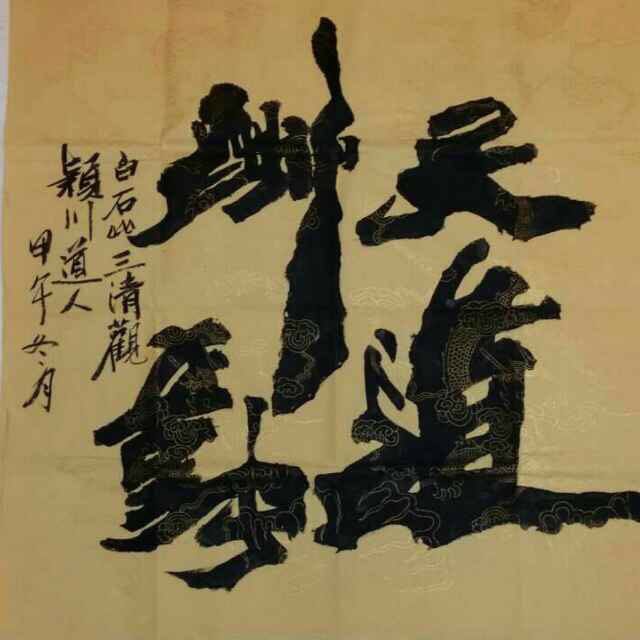 天道
酬勤
白石山三清觀
穎川道人
甲午冬月